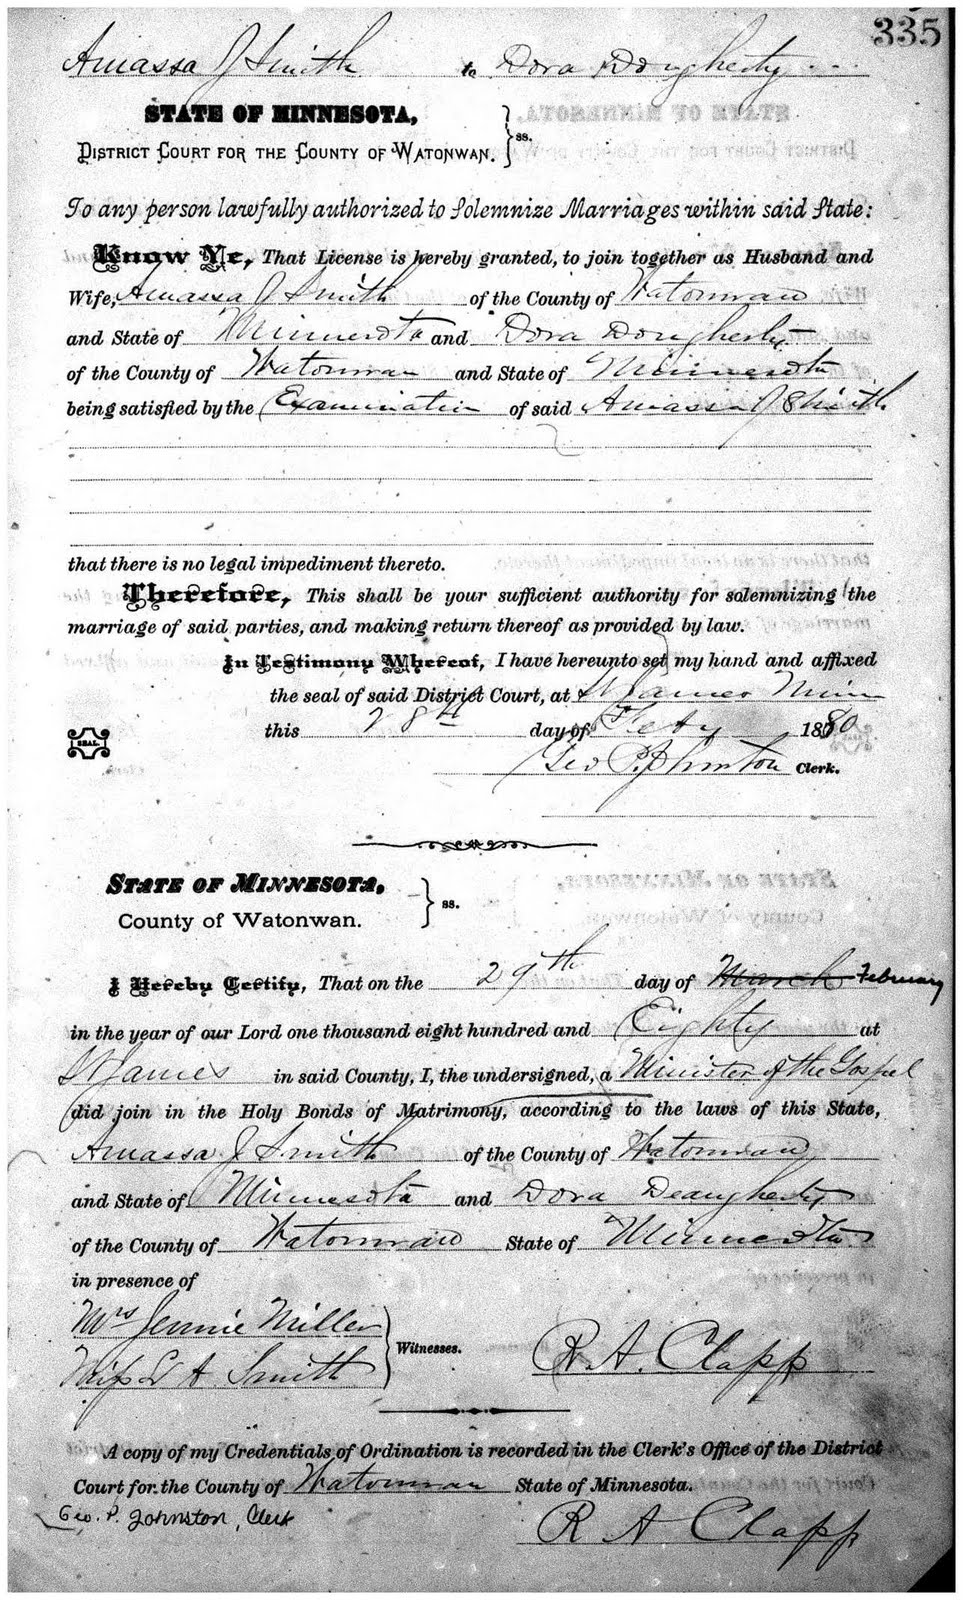 335
Amassa J Smith to Dora Dougherty
STATE OF MINNESOTA,
DISTRICT COURT FOR THE COUNTY OF WATONWAN. } ss.
To any person lawfully authorized to Solemnize Marriages within said State:
Know Ye, That License is hereby granted, to join together as Husband and
Wife, Amassa J Smith of the County of Watonwan
and State of Minnesota and Dora Dougherty
of the County of Watonwan and State of Minnesota
being satisfied by the Examination of said Amassa J Smith
that there is no legal impediment thereto.
Therefore, This shall be your sufficient authority for solemnizing the
marriage of said parties, and making return thereof as provided by law.
In Testimony Whereof, I have hereunto set my hand and affixed
the seal of said District Court, at St James Minn
this 28th day of Feby 1880
SEAL.
Geo P. Johnston Clerk.
STATE OF MINNESOTA,
County of Watonwan. } ss.
I Hereby Certify, That on the 29th day of March February
in the year of our Lord one thousand eight hundred and Eighty at
St James in said County, I, the undersigned, a Minister of the Gospel
did join in the Holy Bonds of Matrimony, according to the laws of this State,
Amassa J Smith of the County of Watonwan
and State of Minnesota and Dora Deaugherty
of the County of Watonwan State of Minnesota
in presence of
Mrs Jennie Miller
Witnesses.
Miss L A Smith
R. A. Clapp
A copy of my Credentials of Ordination is recorded in the Clerk's Office of the District
Court for the County of Watonwan State of Minnesota.
Geo. P. Johnston, Clerk
R A Clapp